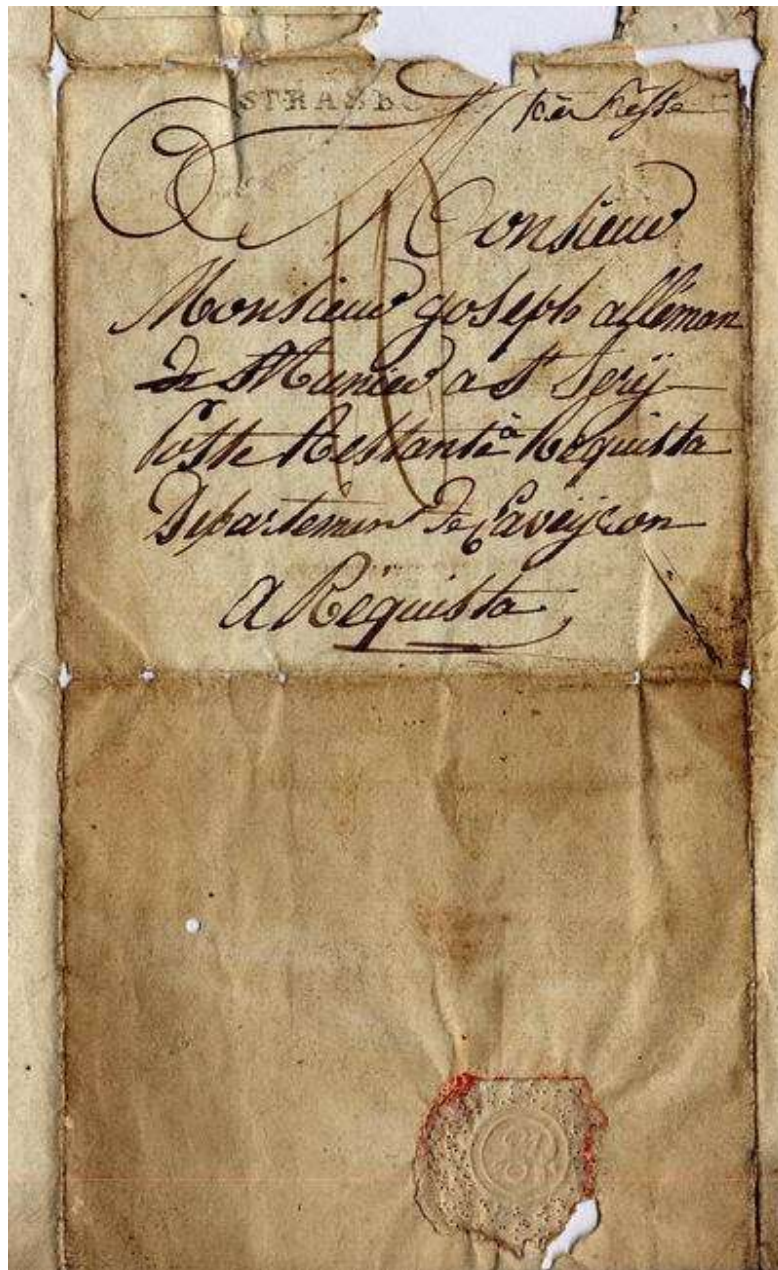 STRASBO
Monsieur
Monsieur joseph alleman
de a St
Poste Restante à Requista
Departement de Laveÿron
a Réquista